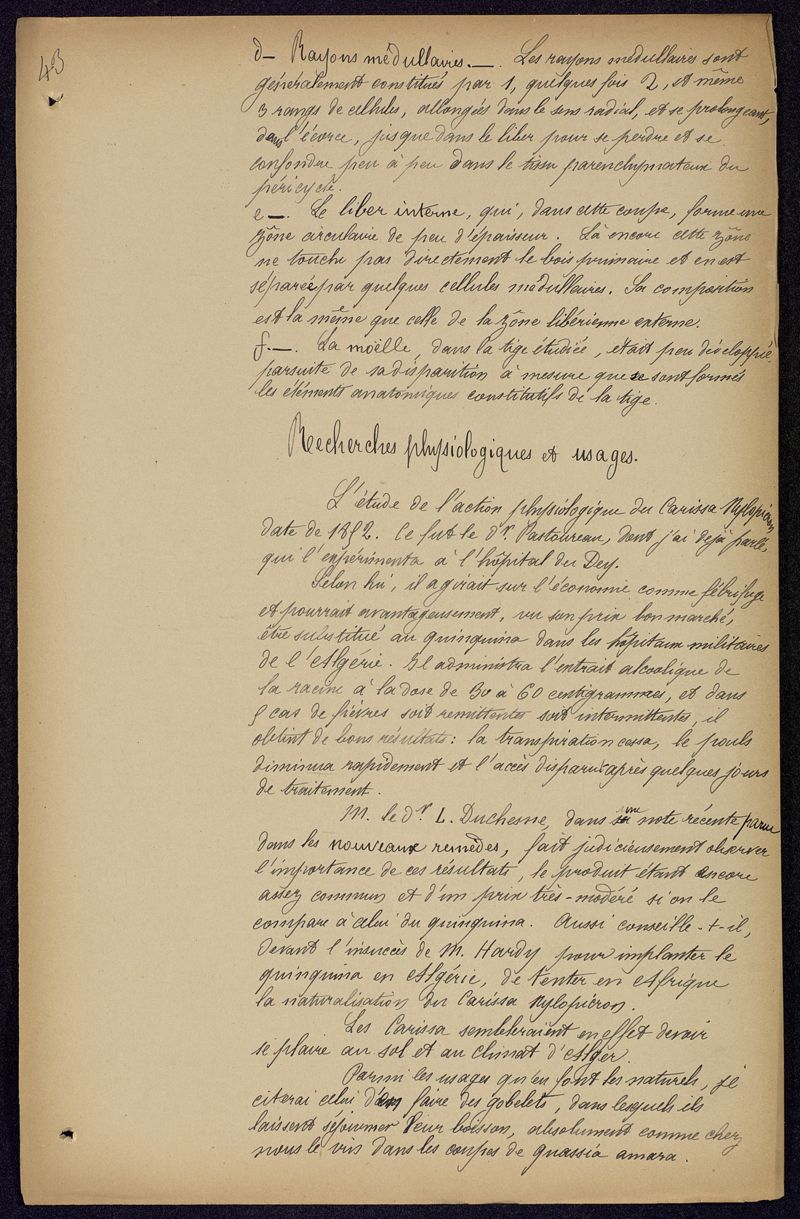 43
d— Rayons médullaires. —. Les rayons médullaires sont
généralement constitués par 1, quelques fois 2, et même
3 rangs de cellules, allongées dans le sens radial, et se prolongeant,
dans l'écorce, jusque dans le liber pour se perdre et se
confondre peu à peu dans le tissu parenchymateux du
péricycle.
e —. Le liber interne, qui, dans cette coupe, forme une
zône circulaire de peu d'épaisseur. Là encore cette zône
ne touche pas directement le bois primaire et en est
séparée par quelques cellules médullaires. Sa composition
est la même que celle de la zône libérienne externe.
f. —. La moëlle, dans la tige étudiée, était peu développée
par suite de sa disparition à mesure que se sont formés
les éléments anatomiques constitutifs de la tige.
Recherches physiologiques et usages.
L'étude de l'action physiologique du Carissa Xylopicron
date de 1852. Ce fut le dr. Pastoureau, dont j'ai déjà parlé,
qui l'expérimenta à l'hôpital du Dey.
Selon lui, il agirait sur l'économie comme fébrifuge
et pourrait avantageusement, vu son prix bon marché,
être substitué au quinquina dans les hôpitaux militaires
de l'Algérie. Il administra l'extrait alcoolique de
la racine à la dose de 30 à 60 centigrammes, et dans
5 cas de fièvres soit remittentes soit intermittentes, il
obtint de bons résultats: la transpiration cessa, le pouls
diminua rapidement et l'accès disparut après quelques jours
de traitement.
M. le dr. L. Duchesne, dans une note récente parue
dans les nouveaux remèdes, fait judicieusement observer
l'importance de ces résultats, le produit étant encore
assez commun et d'un prix très-modéré si on le
compare à celui du quinquina. Aussi conseille-t-il,
devant l'insuccès de M. Hardy pour implanter le
quinquina en Algérie, de tenter en Afrique
la naturalisation du Carissa Xylopicron.
Les Carissa sembleraient en effet devoir
se plaire au sol et au climat d'Alger.
Parmi les usages qu'en font les naturels, je
citerai celui d'en faire des gobelets, dans lesquels ils
laissent séjourner leur boisson, absolument comme chez
nous le vin dans les coupes de quassia amara.